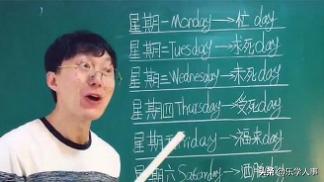 星期一Monday→忙day
星期二Tuesday→求死day
星期三Wednesday→未死day
星期四Thursday→受死day
星期五Friday→福来day
星期六Saturday→洒脱day
头条@乐学人事